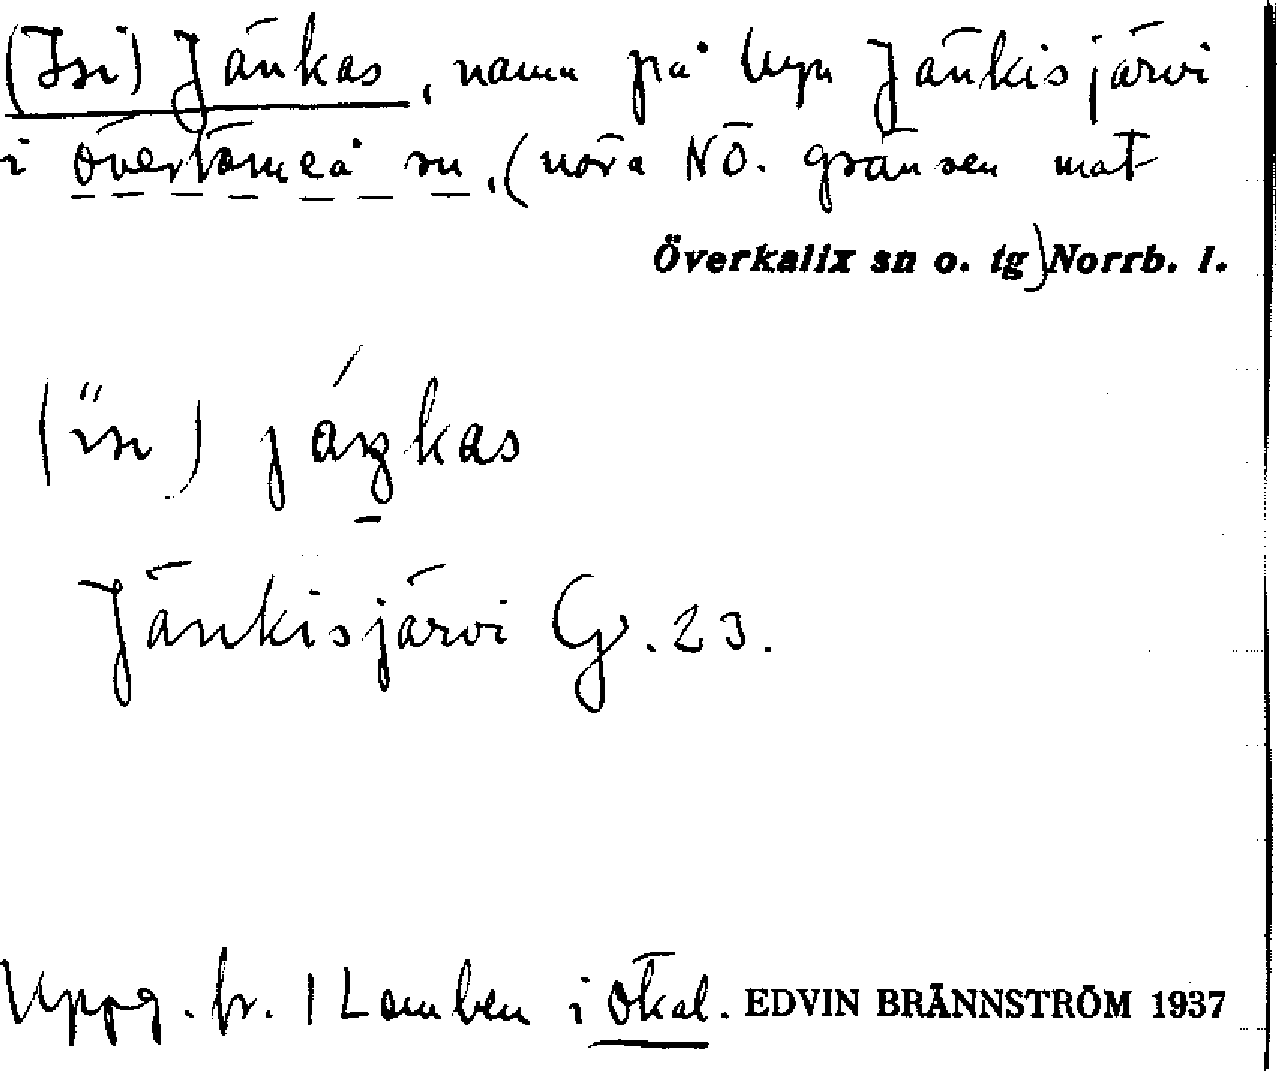 (Isi) Jänkas, namn på byn Jänkisjärvi
i övertorneå sn. (nära NÖ. gränsen mot
Överkalix sn o. tg) Norrb. l.
(ïsı) jáŋkas
Jänkisjärvi G. 23.
Uppg. fr. Lomben i ökal. EDVIN BRÄNNSTRÖM 1937